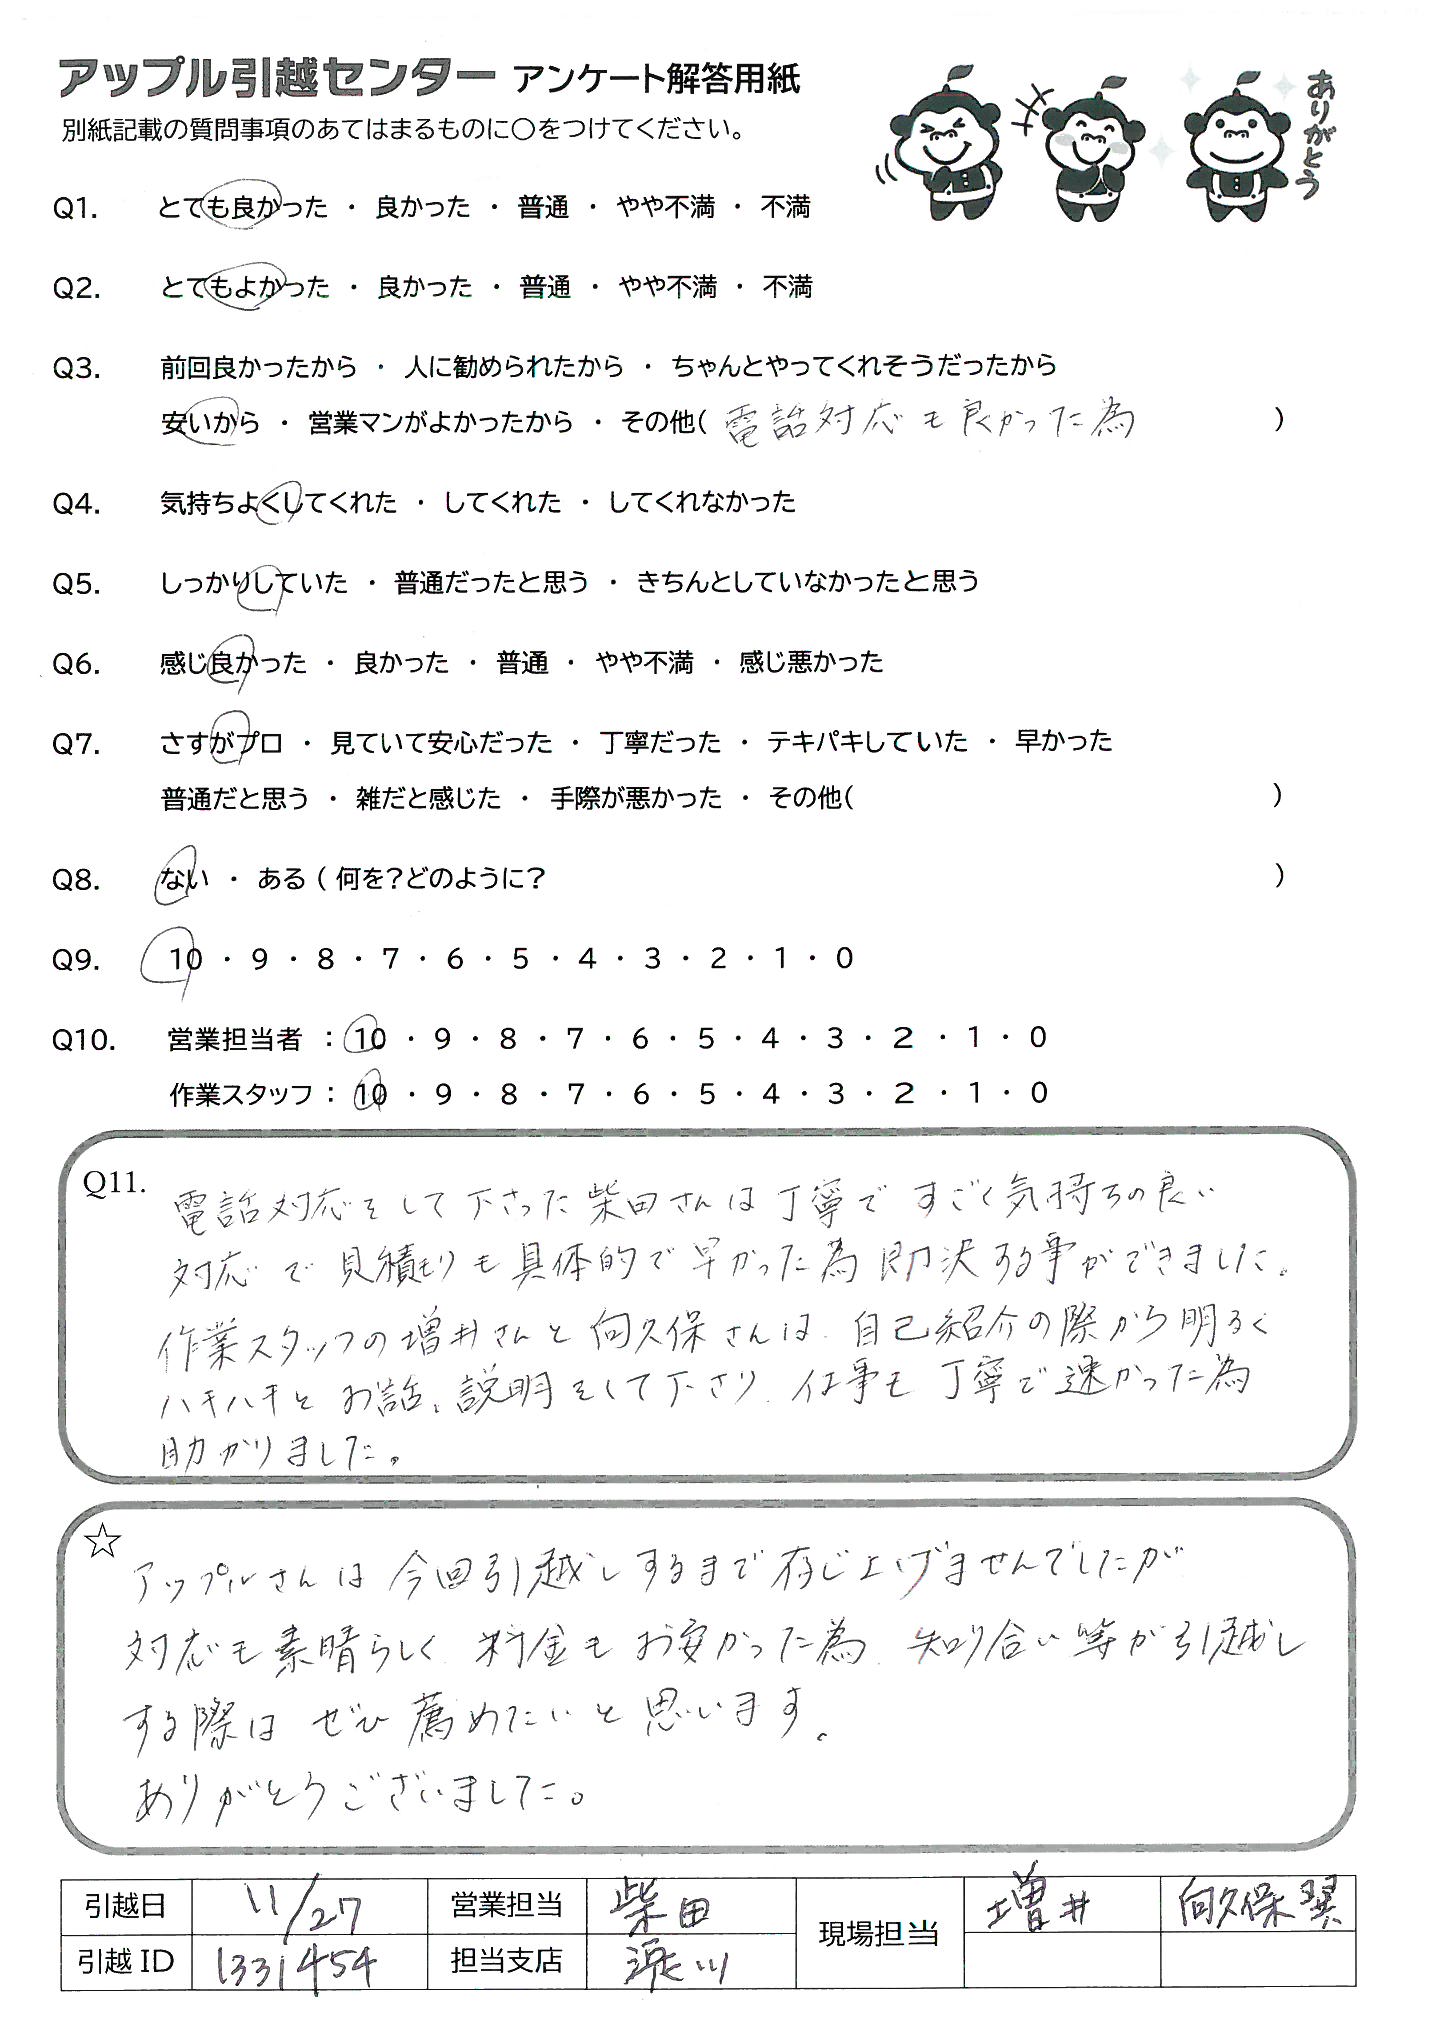 アップル引越センター アンケート解答用紙
ありがとう
別紙記載の質問事項のあてはまるものに○をつけてください。
Q1. とても良かった ・ 良かった ・ 普通 ・ やや不満 ・ 不満
Q2. とてもよかった ・ 良かった ・ 普通 ・ やや不満 ・ 不満
Q3. 前回良かったから ・ 人に勧められたから ・ ちゃんとやってくれそうだったから
安いから ・ 営業マンがよかったから ・ その他( 電話対応も良かった為 )
Q4. 気持ちよくしてくれた ・ してくれた ・ してくれなかった
Q5. しっかりしていた ・ 普通だったと思う ・ きちんとしていなかったと思う
Q6. 感じ良かった ・ 良かった ・ 普通 ・ やや不満 ・ 感じ悪かった
Q7. さすがプロ ・ 見ていて安心だった ・ 丁寧だった ・ テキパキしていた ・ 早かった
普通だと思う ・ 雑だと感じた ・ 手際が悪かった ・ その他( )
Q8. ない ・ ある ( 何を?どのように? )
Q9. 10 ・ 9 ・ 8 ・ 7 ・ 6 ・ 5 ・ 4 ・ 3 ・ 2 ・ 1 ・ 0
Q10. 営業担当者 : 10 ・ 9 ・ 8 ・ 7 ・ 6 ・ 5 ・ 4 ・ 3 ・ 2 ・ 1 ・ 0
作業スタッフ : 10 ・ 9 ・ 8 ・ 7 ・ 6 ・ 5 ・ 4 ・ 3 ・ 2 ・ 1 ・ 0
Q11. 電話対応をして下さった柴田さんは丁寧で すごく気持ちの良い
対応で 見積もりも具体的で早かった為 即決する事ができました。
作業スタッフの増井さんと向久保さんは、自己紹介の際から明るく
ハキハキと お話、説明をして下さり、仕事も 丁寧で速かった為
助かりました。
☆ アップルさんは今回引越しするまで存じ上げませんでしたが
対応も素晴らしく 料金もお安かった為、知り合い等が引越し
する際は ぜひ薦めたいと思います。
ありがとうございました。
引越日 11/27 営業担当 柴田 現場担当 増井 向久保 翼
引越ID 1331454 担当支店